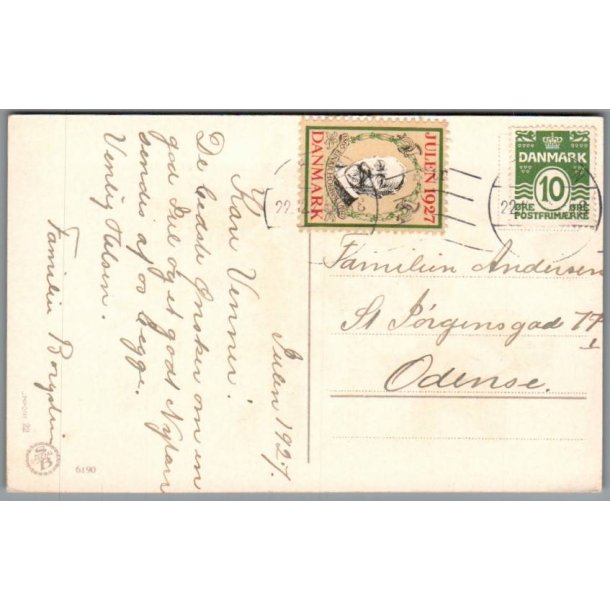 Julen 1927.
Kære Venner!
De bedste Ønsker om en
god Jul og et godt Nytaar
sendes af os begge.
Venlig Hilsen.
Familien
JULEN 1927
DANMARK
DANMARK
10
ØRE ØRE
POSTFRIMÆRKE
22.
22.
Familien Andersen
St Jørgensgad 77
Odense.
6190